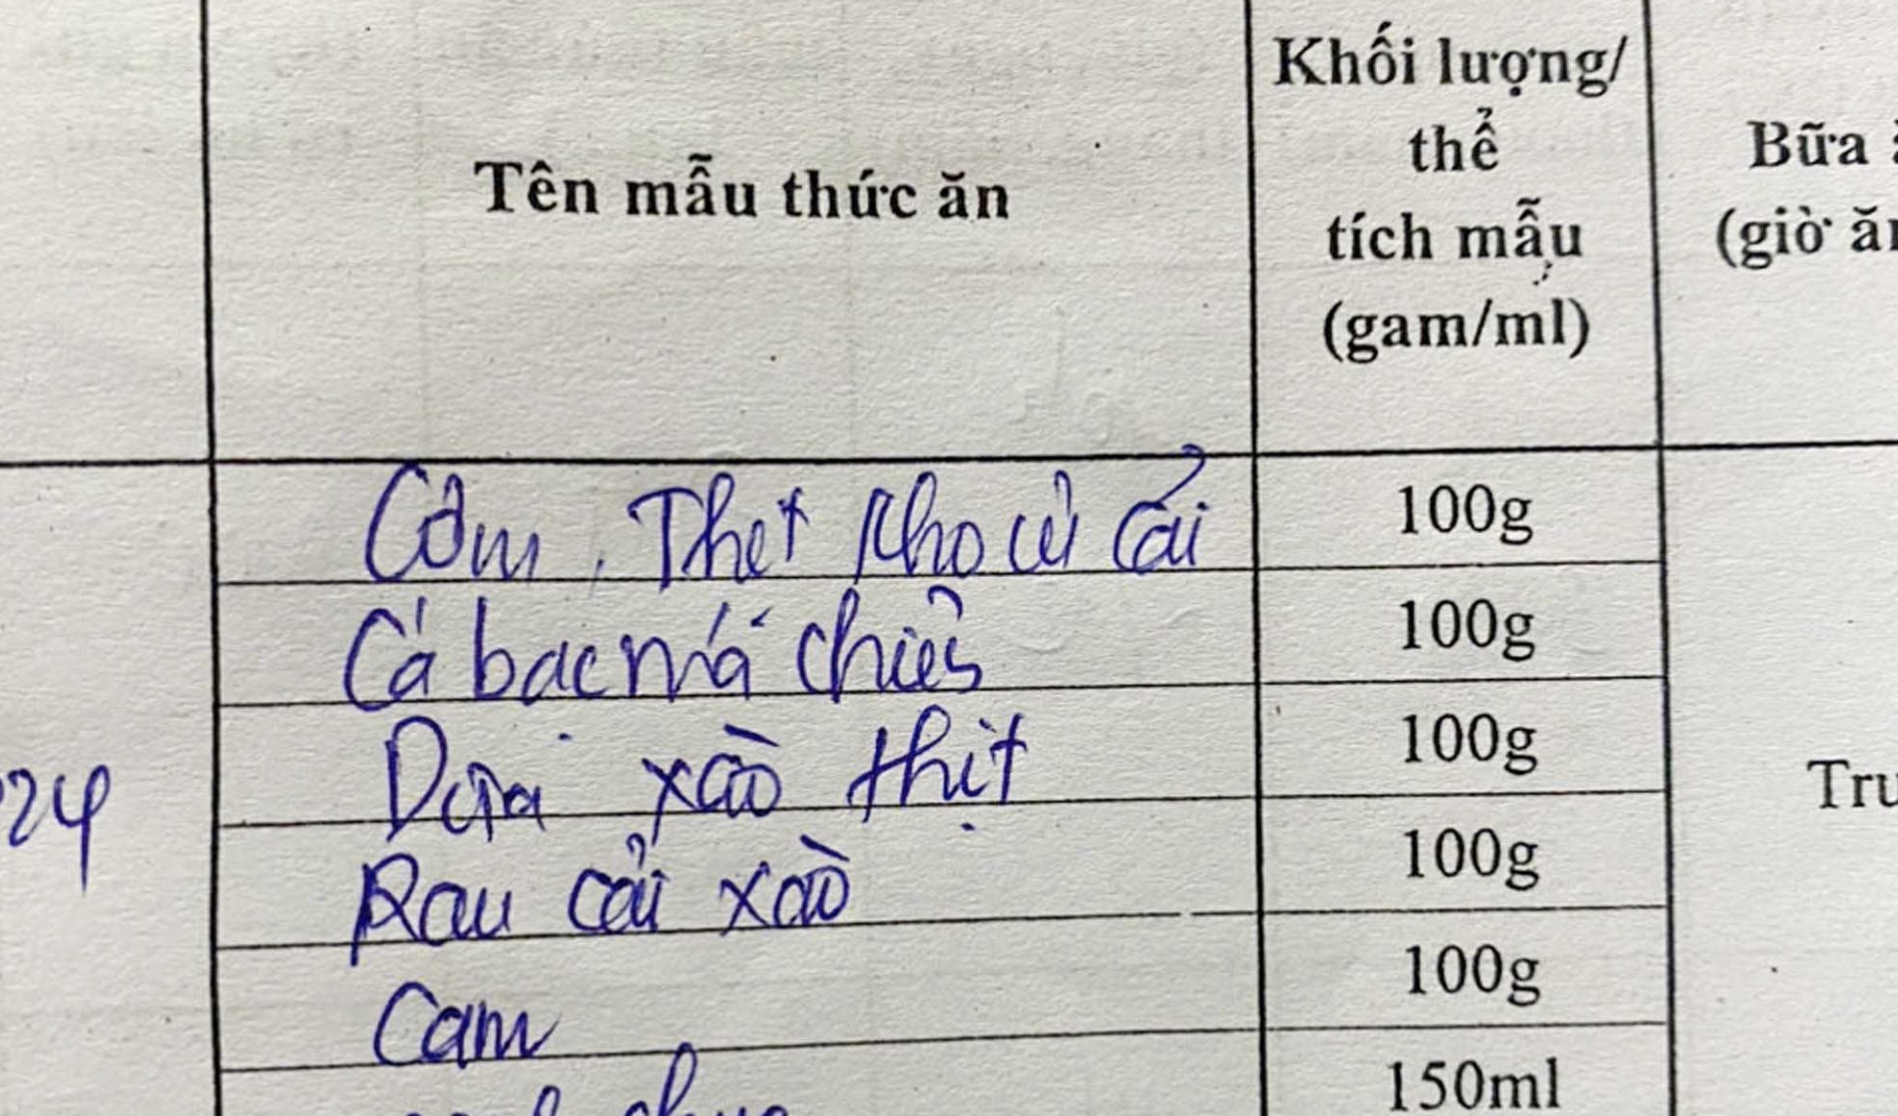 Khối lượng/
thể
tích mẫu
(gam/ml)
Bữa
(giờ ăn
Tên mẫu thức ăn
Cơm, Thịt kho củ cải
100g
Cá bạc má chiên
100g
Dưa xào thịt
100g
24
Tru
Rau cải xào
100g
Cam
100g
150ml